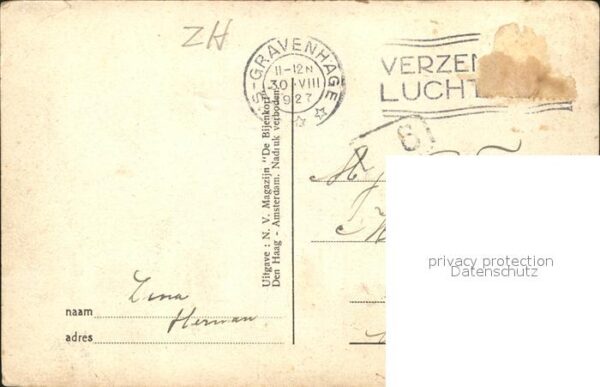 ZH
'S-GRAVENHAGE
11-12N
30 VIII
1927
VERZEN
LUCHT
6
Uitgave: N. V. Magazijn "De Bijenkorf"
Den Haag - Amsterdam. Nadruk verboden
privacy protection
Datenschutz
Lena
naam
Herman
adres